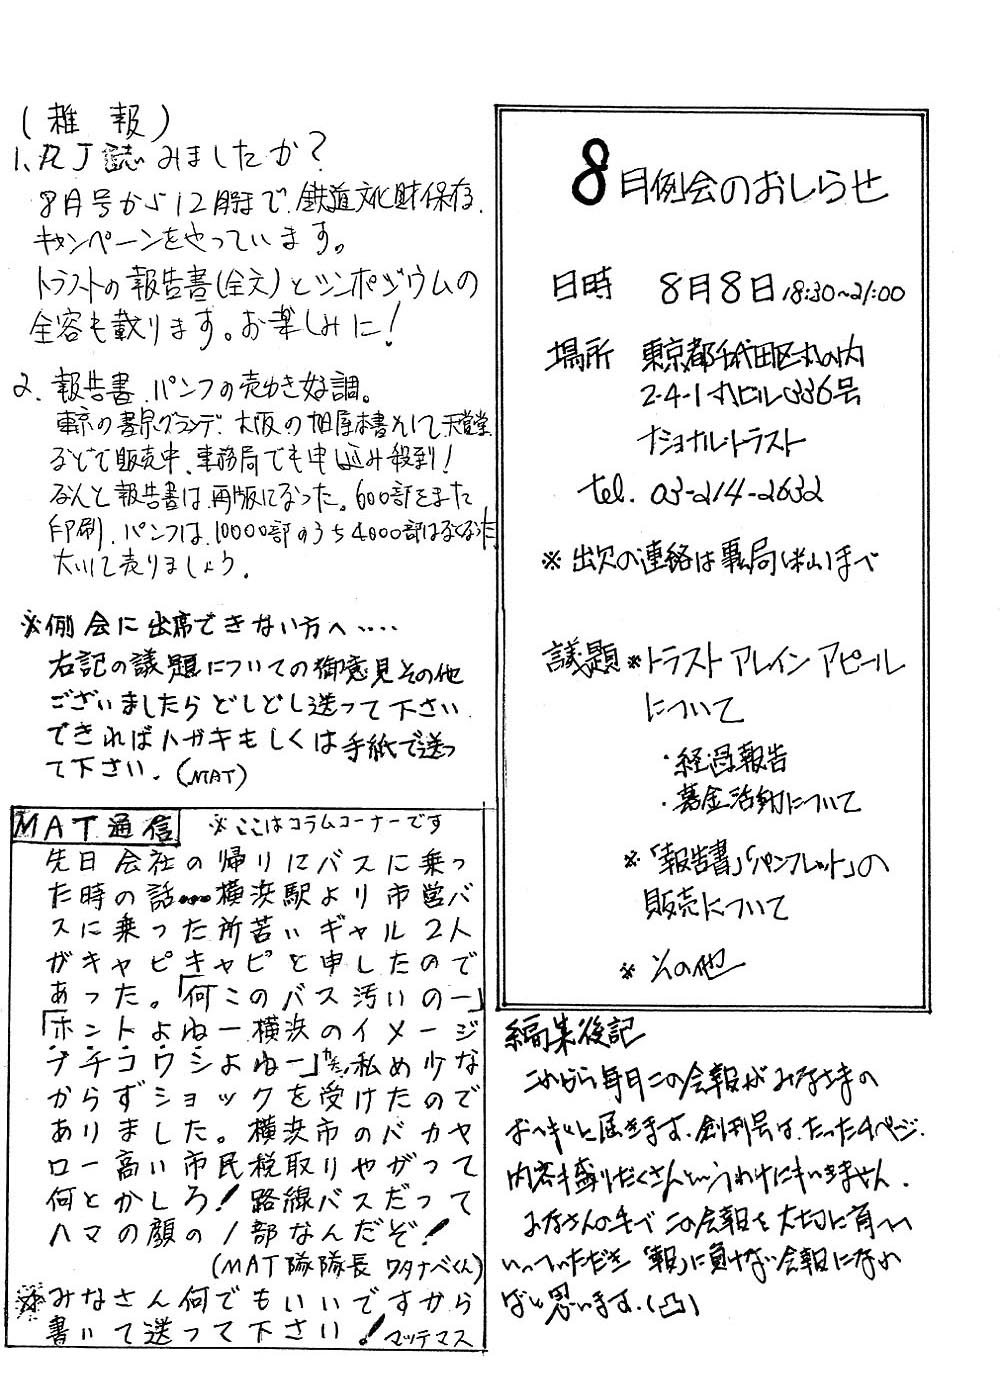 (雑 報)
1、RJ誌みましたか?
8月号から12月号まで、鉄道文化財保存
キャンペーンをやっています。
トラストの報告書(全文)とシンポジウムの
全容も載ります。お楽しみに!
2、報告書、パンフの売れゆき好調。
東京の書泉グランデ、大阪の旭屋本書そして天賞堂
などで販売中、事務局でも申し込み殺到!
なんと報告書は再版になった。600部をまた
印刷、パンフは、10000部のうち4000部はなくなった。
大いに売りましょう。
※例会に出席できない方へ‥‥
右記の議題についての御意見その他
ございましたらどしどし送って下さい
できればハガキもしくは手紙で送っ
て下さい。(MAT)
MAT通信 ※ここはコラムコーナーです
先日会社の帰りにバスに乗っ
た時の話…横浜駅より市営バ
スに乗った所若いギャル2人
がキャピキャピと申したので
あった。「何このバス汚いのー」
「ホントよねー横浜のイメージ
ブチコワシよねー」私め少な
からずショックを受けたので
ありました。横浜市のバカヤ
ロー高い市民税取りやがって
何とかしろ!路線バスだって
ハマの顔の1部なんだぞ!
(MAT隊隊長 ワタナベくん)
※みなさん何でもいいですから
書いて送って下さい!マッテマス
8月例会のおしらせ
日時 8月8日 18:30~21:00
場所 東京都千代田区丸の内
2-4-1 丸ビル336号
ナショナル・トラスト
tel. 03-214-2632
※ 出欠の連絡は事ム局(米山)まで
議題 ※トラストトレインアピール
について
・経過報告
・募金活動について
※「報告書」「パンフレット」の
販売について
※ その他
編集後記
これから毎月この会報がみなさまの
お手もとに届きます。創刊号は、たった4ページ、
内容も盛りだくさんというわけにもいきません。
みなさんの手でこの会報を大切に育てて
いっていただき「報」に負けない会報になれ
ばと思います。(凸)